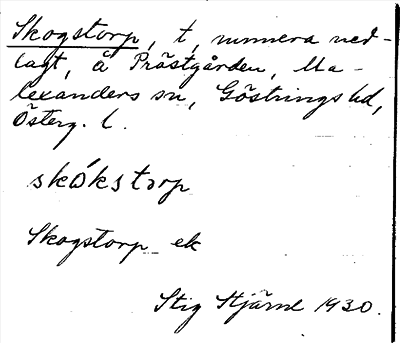 Skogstorp, t, numera ned-
lagt, å Prästgården, Ma-
lexanders sn, Göstrings hd,
Österg. l.
skókstorp
Skogstorp ek
Stig Stjärne 1930.